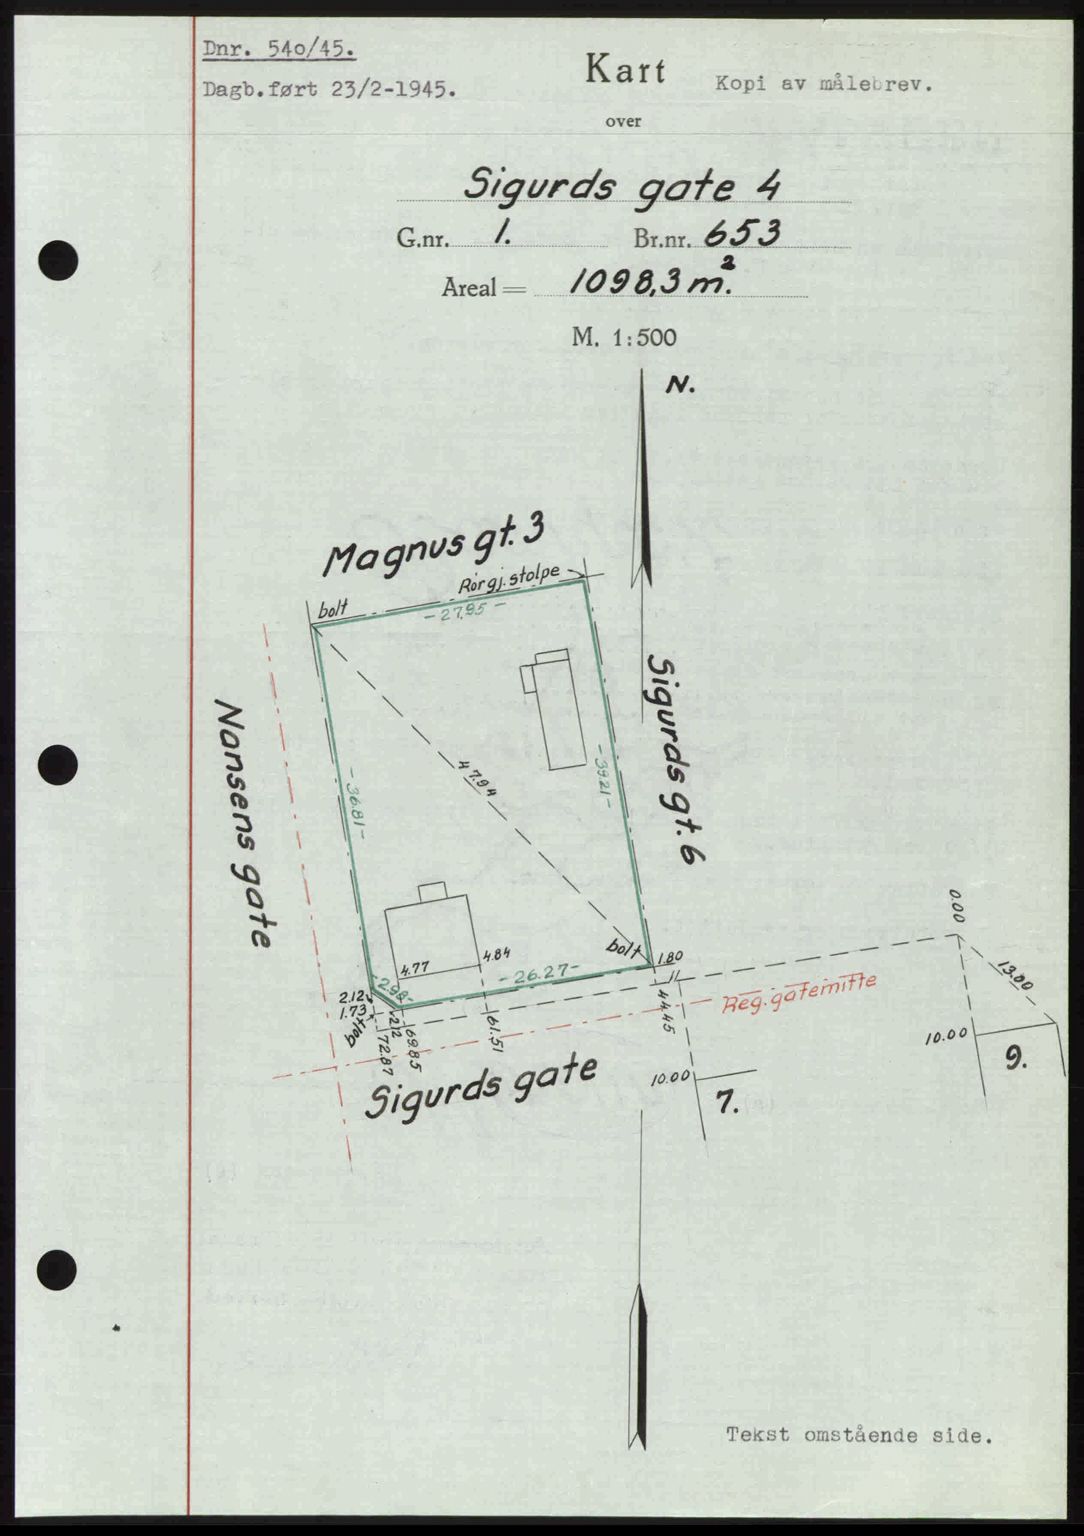 Dnr. 540/45.
Dagb.ført 23/2-1945.
Kart
Kopi av målebrev.
over
Sigurds gate 4
G.nr. 1. Br.nr. 653
Areal = 1098,3 m².
M. 1:500
N.
Magnus gt. 3
Rørgj. stolpe
bolt
-27.95-
Nansens gate
-36.81-
47.94
-39.21-
Sigurds gt. 6
bolt
1.80
4.77
4.84
-26.27-
-2.98-
2.12
1.73
bolt
2.12
72.87
69.85
61.51
44.45
11
Reg. gatemitte
0.00
13.00
10.00
9.
10.00
7.
Sigurds gate
Tekst omstående side.